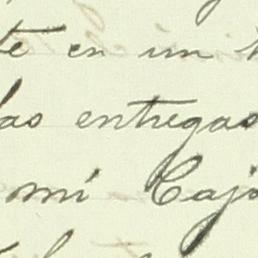 te en un
las entregas
mi Caja